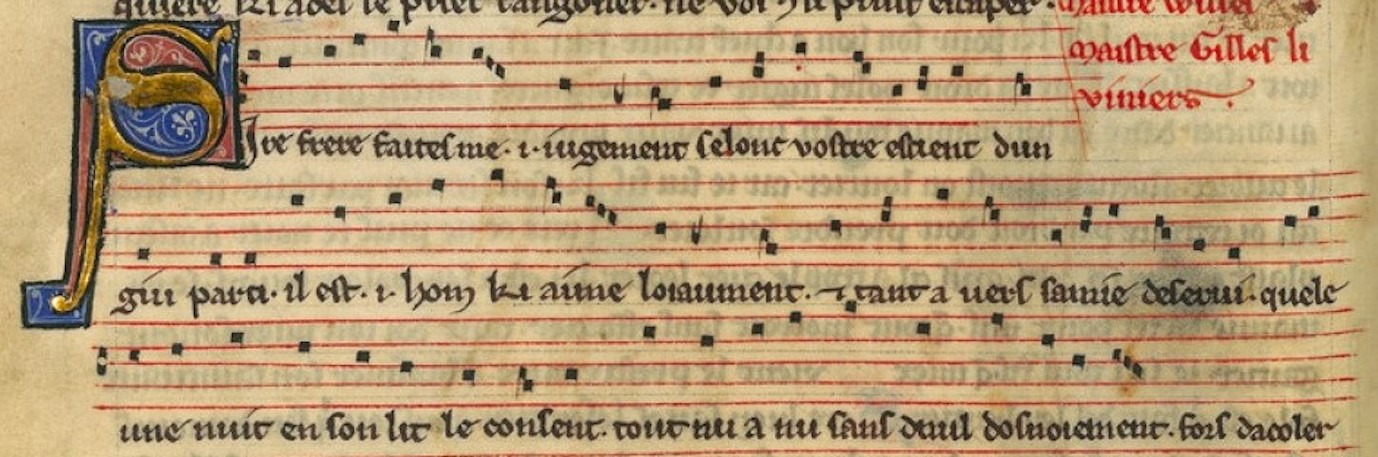 quiere ki adel le puet
maistre willes
maistre Gilles li
viniers.
Sire frere faites me .i. iugement selonc vostre escient dun
giu parti. il est .i. hom ki aime loiaument. ⁊ tant a uers samie deserui. quele
une nuit en son lit le consent. tout nu a nu sans deuil dosnoiement. fors dacoler